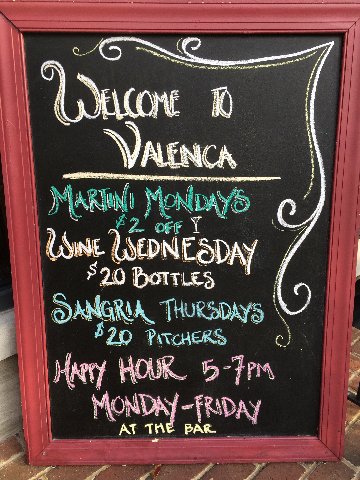 Welcome to
Valenca
Martini Mondays
$2 off
Wine Wednesday
$20 Bottles
Sangria Thursdays
$20 Pitchers
Happy Hour 5-7pm
Monday-Friday
at the bar